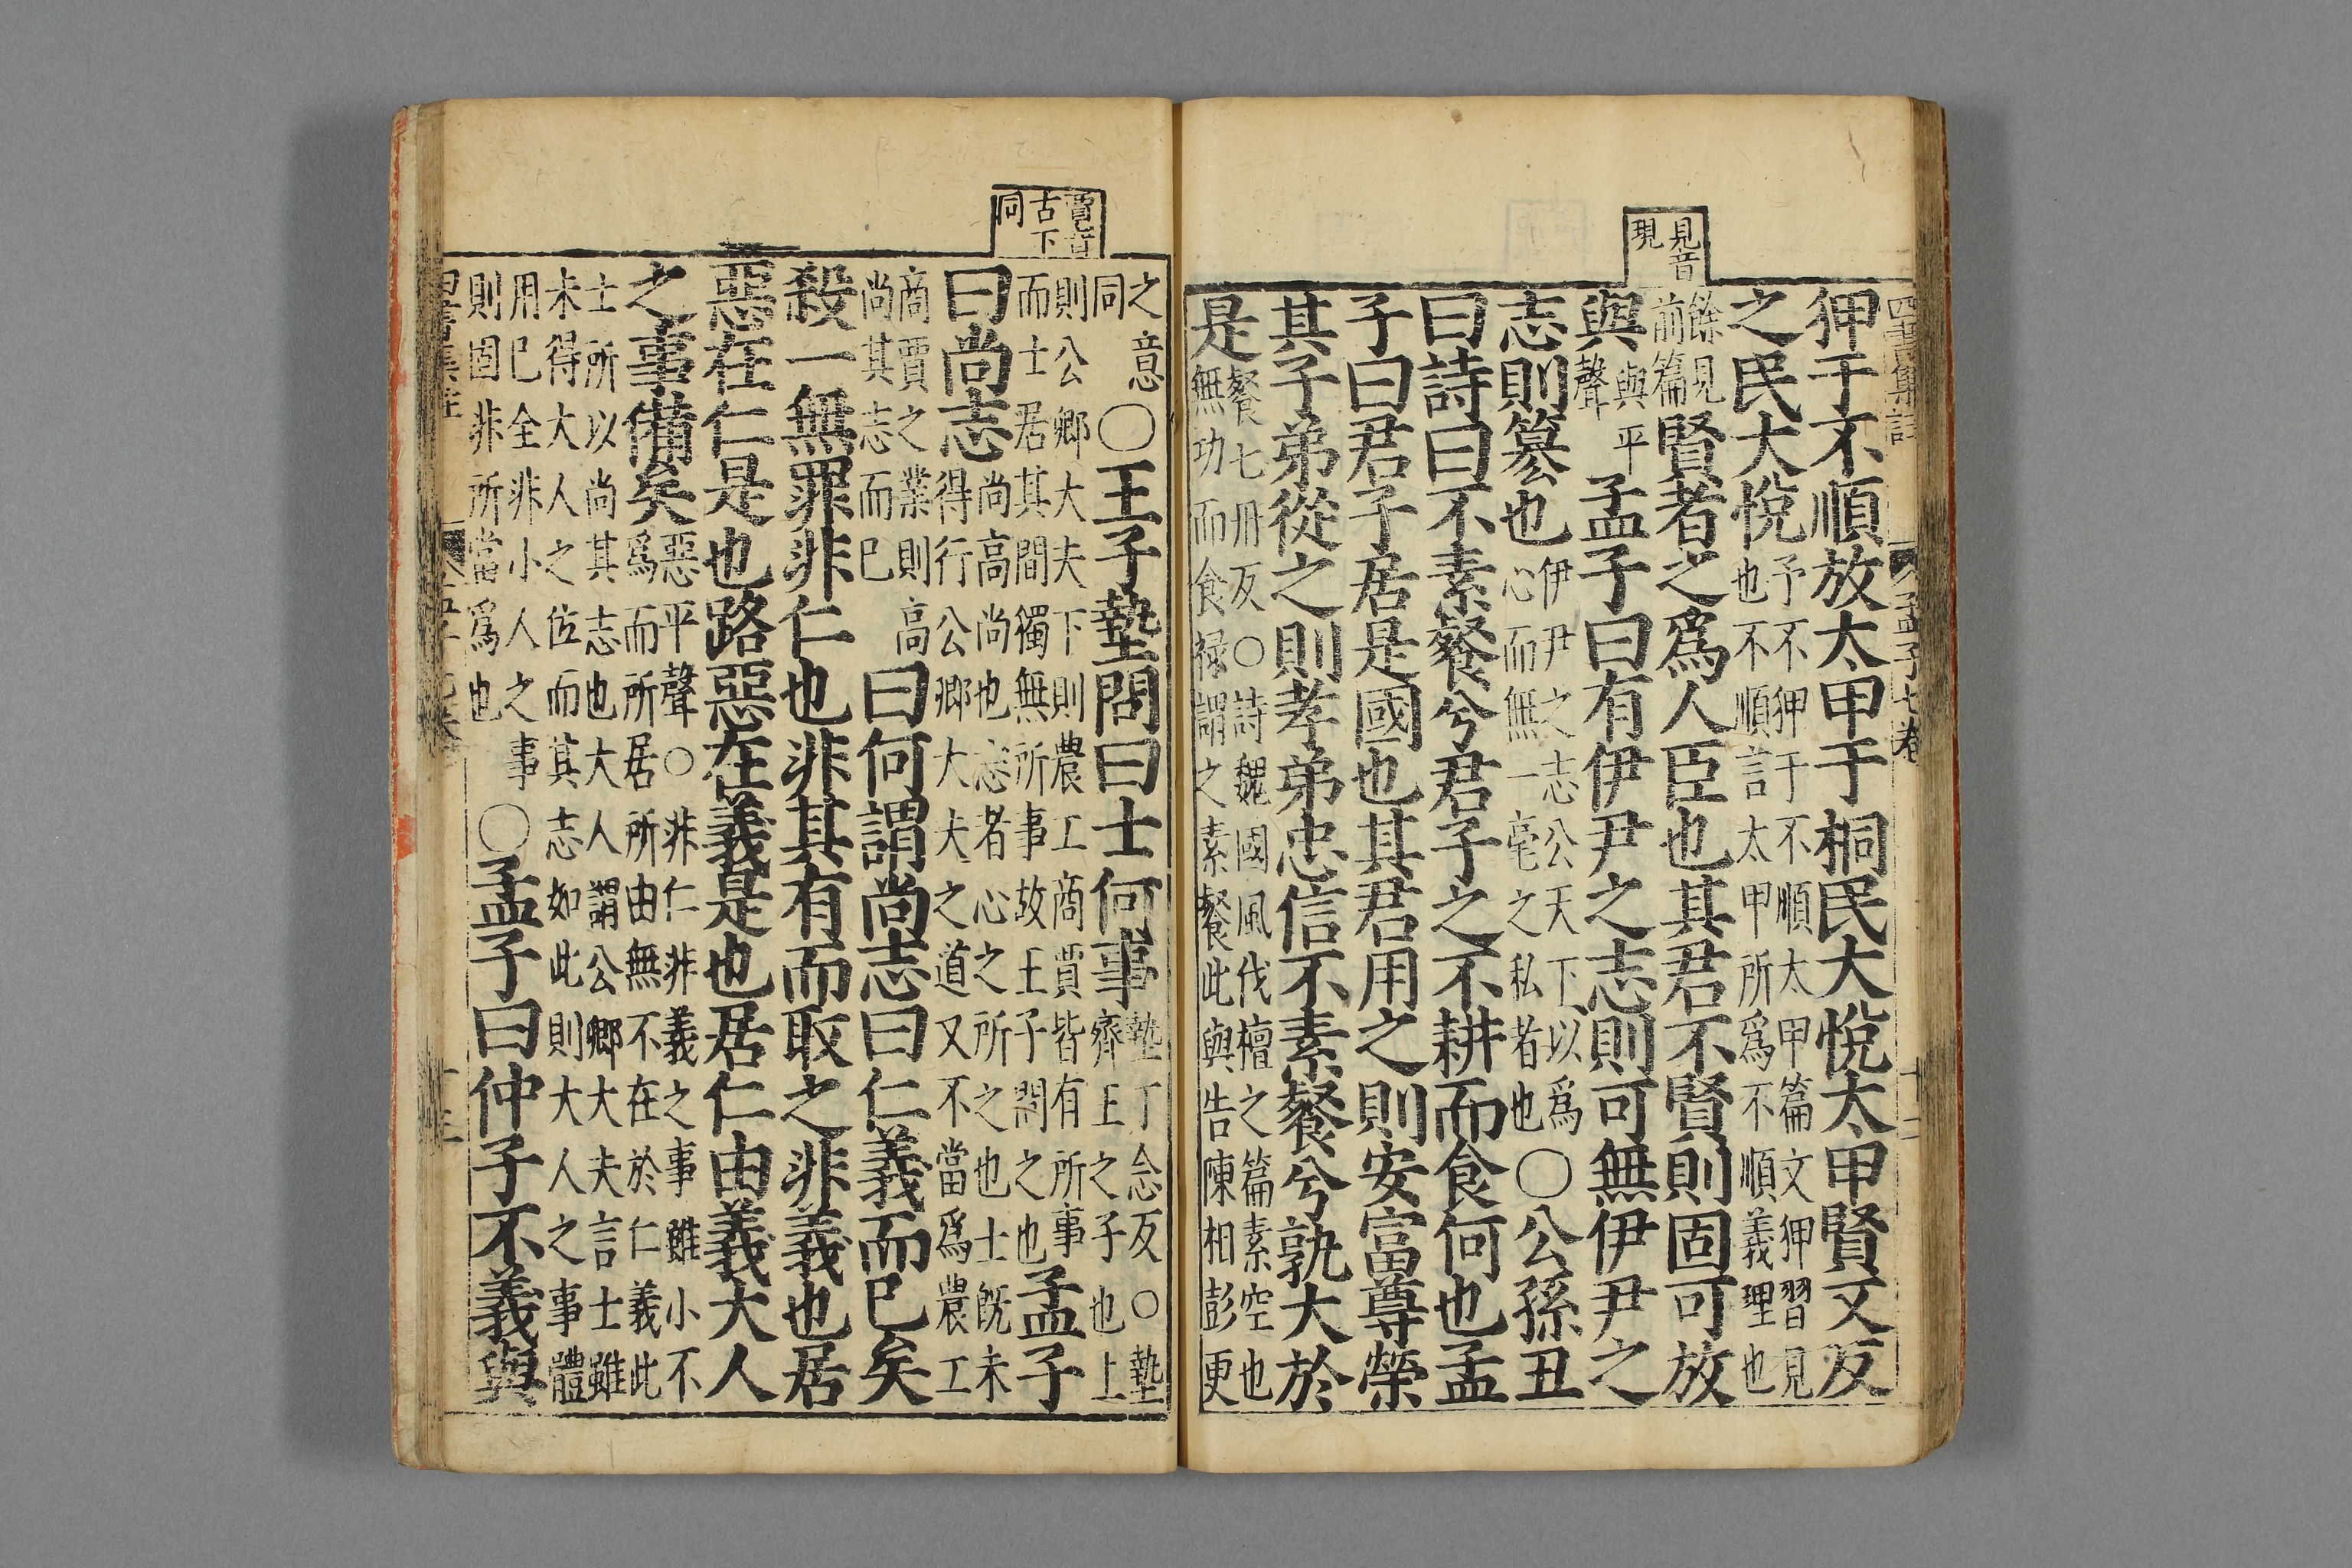 四書集註　孟子七卷　十二
見音
現
狎于不順放太甲于桐民大悅太甲賢又反
之民大悅
予不狎于不順太甲篇文狎習見
也不順言太甲所爲不順義理也
餘見
前篇
賢者之爲人臣也其君不賢則固可放
與
與平
聲
孟子曰有伊尹之志則可無伊尹之
志則簒也
伊尹之志公天下以爲
心而無一毫之私者也
○公孫丑
曰詩曰不素餐兮君子之不耕而食何也孟
子曰君子居是國也其君用之則安富尊榮
其子弟從之則孝弟忠信不素餐兮孰大於
是
餐七丹反○詩魏國風伐檀之篇素空也
無功而食禄謂之素餐此與告陳相彭更
賈音
古下
同
之意
同
○王子墊問曰士何事
墊丁念反○墊
齊王之子也上
則公卿大夫下則農工商賈皆有所事
而士居其間獨無所事故王子問之也
孟子
曰尚志
尚高尚也志者心之所之也士旣未
得行公卿大夫之道又不當爲農工
商賈之業則高
尚其志而已
曰何謂尚志曰仁義而已矣
殺一無罪非仁也非其有而取之非義也居
惡在仁是也路惡在義是也居仁由義大人
之事備矣
惡平聲○非仁非義之事雖小不
爲而所居所由無不在於仁義此
士所以尚其志也大人謂公卿大夫言士雖
未得大人之位而其志如此則大人之事體
用已全非小人之事
則固非所當爲也
○孟子曰仲子不義與